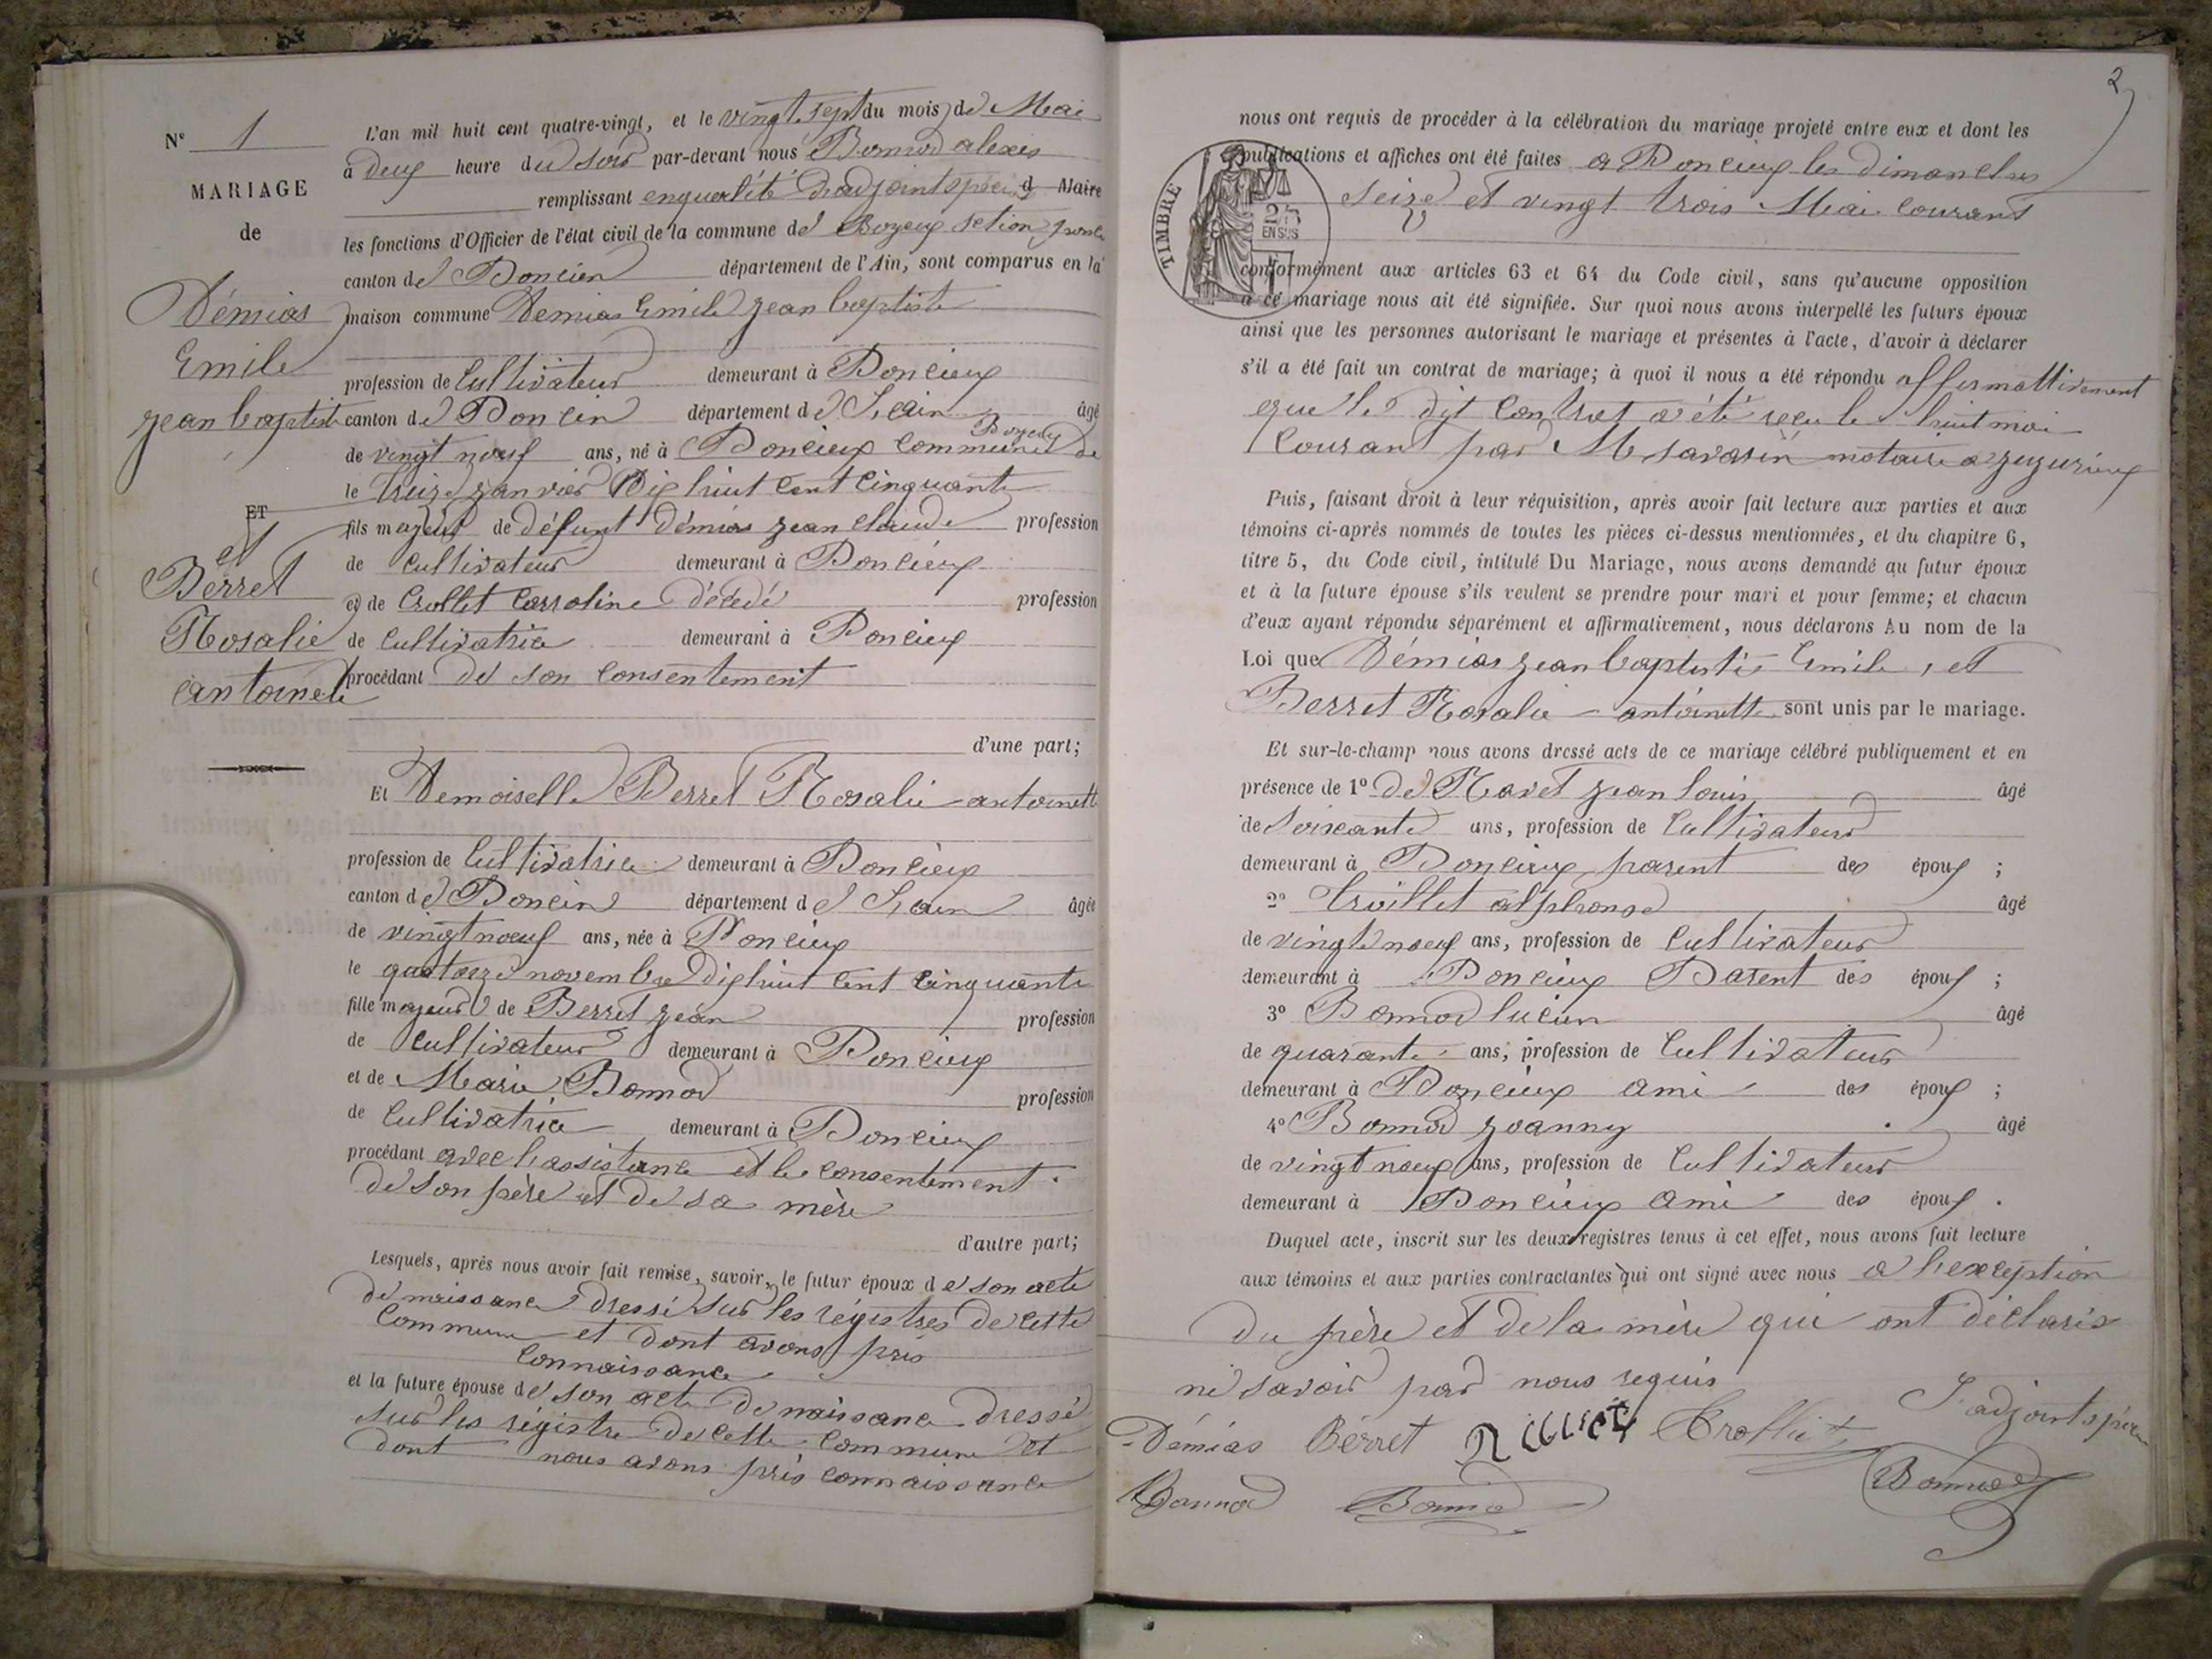 N° 1
MARIAGE
de
Démias
Emile
jean baptiste
ET
et
Berret
Rosalie
antoinette
L'an mil huit cent quatre-vingt, et le vingt sept du mois de Mai
à deux heure du soir par-devant nous Bonnod alexis
remplissant enqualité d'adjoint spécial d Maire
les fonctions d'Officier de l'état civil de la commune de Boyeux section
canton de Poncien département de l'Ain, sont comparus en la
maison commune Demias Emile jean baptiste
profession de Cultivateur demeurant à Poncieux
canton de Poncin département de L'ain âgé
de vingt neuf ans, né à Poncieux commune de Boyeux
le treize janvier Dix huit cent cinquante
fils majeur de défunt démias jean claude profession
de cultivateur demeurant à Poncieux
et de Crollet Carroline décédé profession
de cultivatrice demeurant à Poncieux
procédant de son consentement
d'une part;
Et Demoiselle Berret Rosalie antoinette
profession de Cultivatrice demeurant à Poncieux
canton de Poncin département de L'ain âgée
de vingt neuf ans, née à Poncieux
le quatorze novembre dix huit cent cinquante
fille majeure de Berret jean profession
de cultivateur demeurant à Poncieux
et de Marie Bonnod profession
de Cultivatrice demeurant à Poncieux
procédant avec l'assistance et le consentement
de son père et de sa mère
d'autre part;
Lesquels, après nous avoir fait remise, savoir, le futur époux de son acte
de naissance dressé sur les régistres de cette
Commune et dont avons pris
connaissance
et la future épouse de son acte de naissance dressé
sur les régistre de cette commune et
dont nous avons pris connaissance
2
nous ont requis de procéder à la célébration du mariage projeté entre eux et dont les
publications et affiches ont été faites a Poncieux les dimanches
seize et vingt trois Mai courant
TIMBRE
25
EN SUS
conformément aux articles 63 et 64 du Code civil, sans qu'aucune opposition
à ce mariage nous ait été signifiée. Sur quoi nous avons interpellé les futurs époux
ainsi que les personnes autorisant le mariage et présentes à l'acte, d'avoir à déclarer
s'il a été fait un contrat de mariage; à quoi il nous a été répondu affermattivement
que le dit contrat a été reçu le huit mai
courant par M savarin notaire a jujurieux
Puis, faisant droit à leur réquisition, après avoir fait lecture aux parties et aux
témoins ci-après nommés de toutes les pièces ci-dessus mentionnées, et du chapitre 6,
titre 5, du Code civil, intitulé Du Mariage, nous avons demandé au futur époux
et à la future épouse s'ils veulent se prendre pour mari et pour femme; et chacun
d'eux ayant répondu séparément et affirmativement, nous déclarons Au nom de la
Loi que Démias jean baptiste Emile, et
Berret Rosalie antoinette sont unis par le mariage.
Et sur-le-champ nous avons dressé acte de ce mariage célébré publiquement et en
présence de 1° de Ravet jean louis âgé
de soixante ans, profession de Cultivateur
demeurant à Poncieux parent des époux ;
2° Crollet alphonse âgé
de vingt neuf ans, profession de Cultivateur
demeurant à Poncieux Parent des époux ;
3° Bonnod lucien âgé
de quarante ans, profession de Cultivateur
demeurant à Poncieux ami des époux ;
4° Bonnod joanny âgé
de vingt neuf ans, profession de Cultivateur
demeurant à Poncieux ami des époux .
Duquel acte, inscrit sur les deux registres tenus à cet effet, nous avons fait lecture
aux témoins et aux parties contractantes qui ont signé avec nous a l'exception
du père et de la mère qui ont déclaré
ne savoir par nous requis
Démias Berret Crollet L'adjoint spécial
Bonnod Bonnod Bonnod